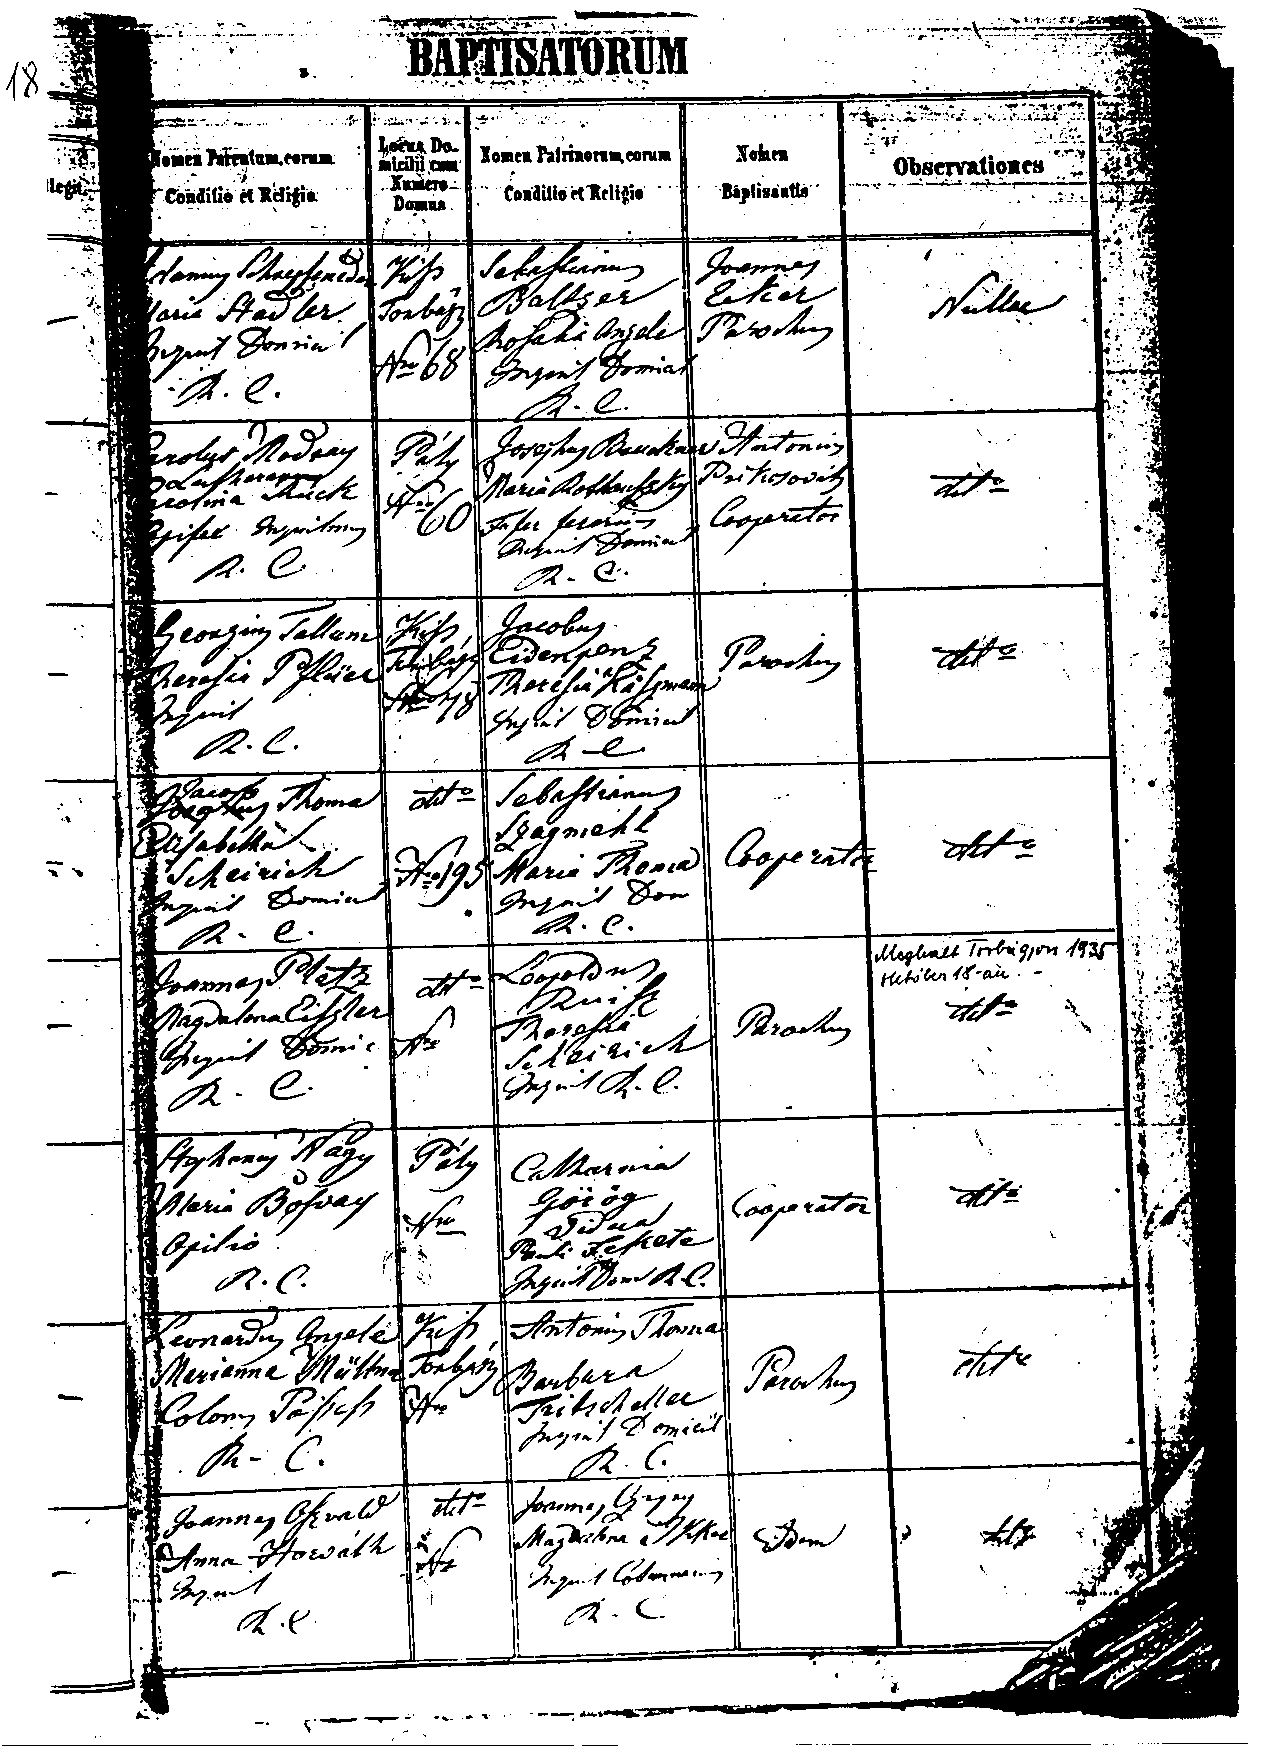 18
BAPTISATORUM
Nomen Parentum, eorum
Conditio et Religio
Locus Do-
micilii cum
Numero
Domus
Nomen Patrinorum, eorum
Conditio et Religio
Nomen
Baptisantis
Observationes
legit.
Maria Stadler
Inquil Domicil
R. C.
Kiss
Torbágy
Nro 68
Sebastianus
Baltzer
Rosalia Angele
Inquil Domicil
R. C.
Joannes
Ecker
Parochus
Nullae
Carolus
Lutheranus
Carolina
Opifex Inquilinus
R. C.
Páty
Nro 60
Josephus
Maria
Inquil Domicil
R. C.
Antonius
Cooperator
detto
Georgius
Theresia
Inquil
R. C.
Kiss
Torbágy
Nro 78
Jacobus
Eidenpenz
Theresia
Inquil Domicil
R C
Parochus
detto
Jacob
Josephus Thoma
Elisabetha
Scheirich
Inquil Domicil
R. C.
detto
Nro 195
Sebastianus
Maria Thoma
Inquil Dom
R. C.
Cooperator
detto
Joannes Platz
Magdalena Eissler
Inquil Domic
R. C.
detto
Nro
Leopoldus
Theresia
Scheirich
Inquil R. C.
Parochus
Meghalt Torbágyon 1935
Október 18-án.
detto
Stephanus Nagy
Maria
Opilio
R. C.
Páty
Nro
Catharina
Görög
Vidua
Pauli Fekete
Inquil Dom R. C.
Cooperator
detto
Leonardus Angele
Marianna
Colonus
R. C.
Kiss
Torbágy
Nro
Antonius Thoma
Barbara
Tritscheller
Inquil Domicil
R. C.
Parochus
detto
Joannes Oszvald
Anna Horváth
Inquil
R. C.
detto
Nro
Joannes
Magdalena
Inquil
R. C.
Idem
detto